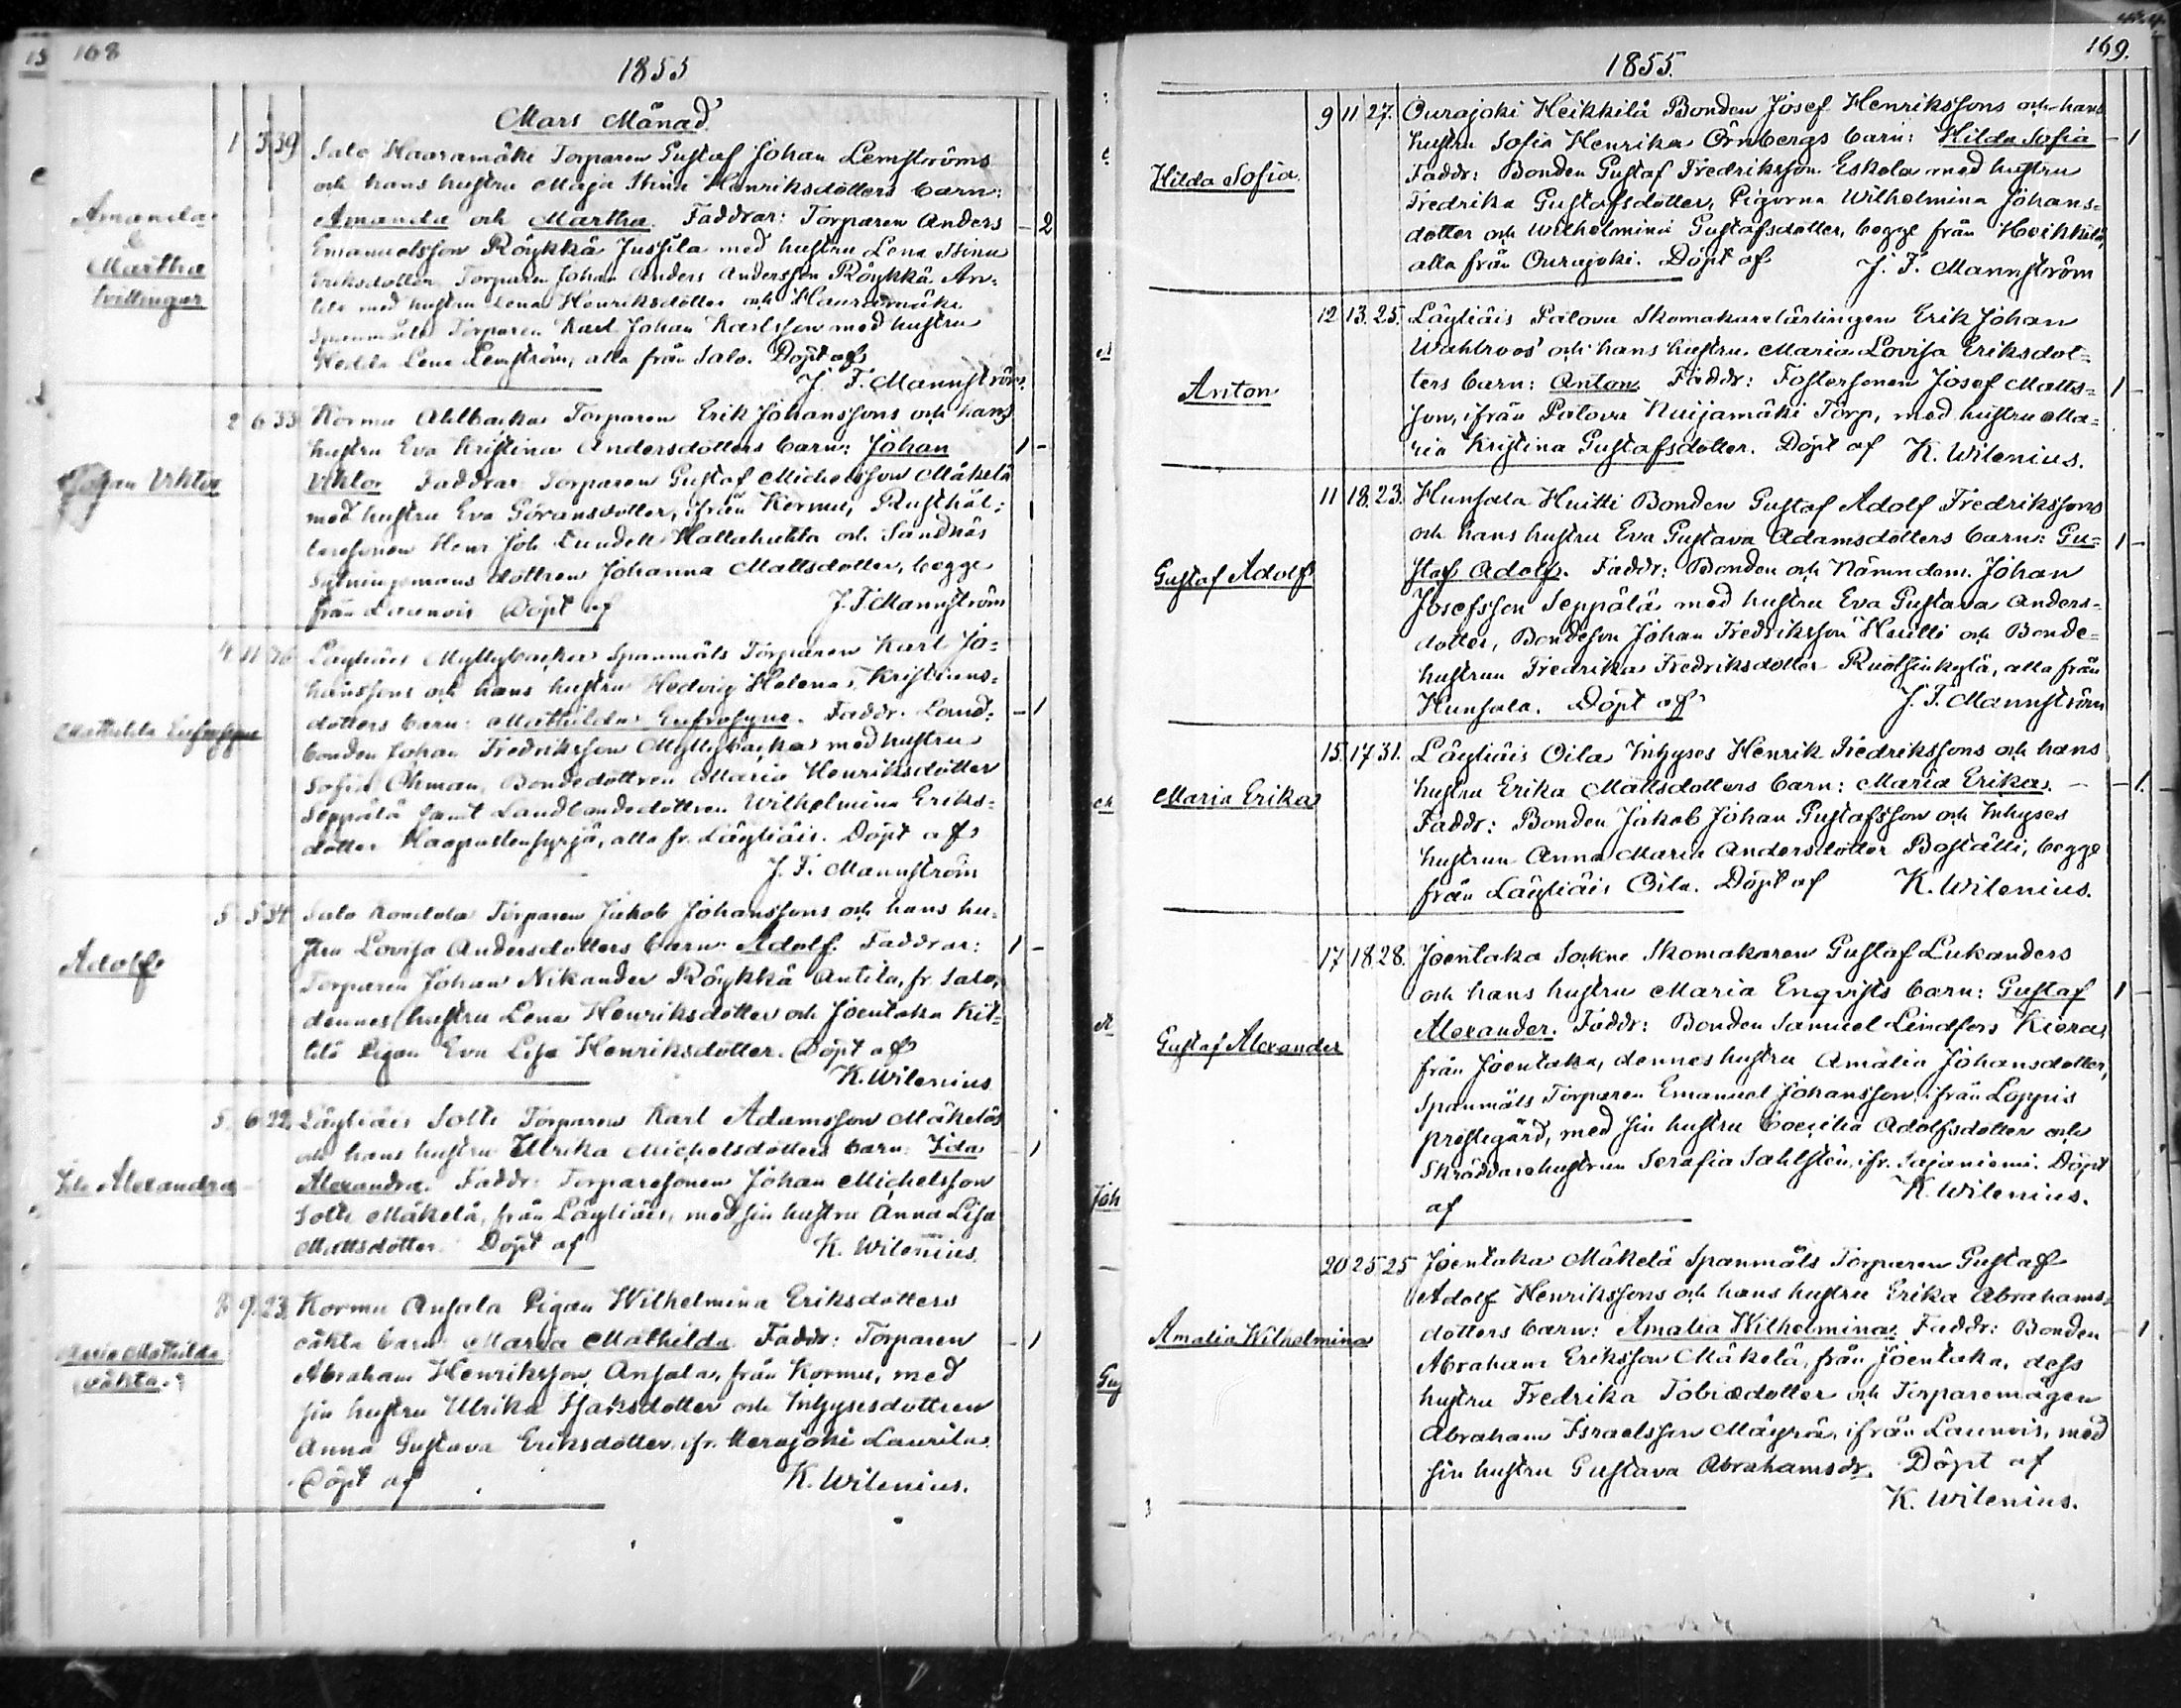 168
1855
Mars Månad.
1 3 39 Salo Haaramäki Torparen Gustaf Johan Lemströms
och hans hustru Maja Stina Henriksdotters barn:
Amanda & Martha tvillingar
Amanda och Martha. Faddrar: Torparen Anders - 2
Emanuelsson Röykkä Jussila med hustru Lena Stina
Eriksdotter, Torparen Johan Anders Andersson Röykkä An=
tila med hustru Lena Henriksdotter och Haaramäki
Spanmåls Torparen Karl Johan Karlsson med hustru
Hedda Lena Lemström, alla från Salo. Döpt af
J. F. Mannström.
2 6 33 Kormu Ahlbacka Torparen Erik Johanssons och hans
hustru Eva Kristina Andersdotters barn: Johan 1 -
Johan Viktor
Viktor Faddrar Torparen Gustaf Michelsson Mäkelä
med hustru Eva Göransdotter, ifrån Kormu, Rusthål=
laresonen Henr Joh Lundell Hallahuhta och Sandnäs
Sytningsmans dottren Johanna Mattsdotter, begge
från Launois Döpt af J. F. Mannström
4 11 Läyliäis Myllybacka Spanmåls Torparen Karl Jo=
hanssons och hans hustru Hedvig Helena Kristians=
dotters barn: Mathilda Eufrosyne. Faddr. Land= - 1
Mathilda Eufrosyne
bonden Johan Fredriksson Myllybacka med hustru
Sofia Öhman, Bondedottren Maria Henriksdotter
Seppälä samt Landbondedottren Wilhelmina Eriks=
dotter Haapastensyrjä, alla fr. Läyliäis. Döpt af
J. F. Mannström
5 5 34 Salo Torparen Jakob Johanssons och hans hu=
stru Lovisa Andersdotters barn: Adolf. Faddrar: 1 -
Adolf
Torparen Johan Nikander Röykkä Antila, fr. Salo,
dennes hustru Lena Henriksdotter och Joentaka Kit=
tilä Pigan Eva Lisa Henriksdotter. Döpt af
K. Wilenius
5. 6 22. Läyliäis Sotti Torparen Karl Adamsson Mäkeläs
och hans hustru Ulrika Michelsdotters barn: Ida - 1
Ida Alexandra
Alexandra. Faddr: Torparesonen Johan Michelsson
Sotti Mäkelä, från Läyliäis, med sin hustru Anna Lisa
Mattsdotter. Döpt af K. Wilenius.
8. 9. 23. Kormu Ansala Pigan Wilhelmina Eriksdotters
oäkta barn: Maria Mathilda. Faddr: Torparen - 1
Maria Mathilda
(oäkta.)
Abraham Henriksson Ansala, från Kormu, med
sin hustru Ulrika Isaksdotter och Inhysesdottren
Anna Gustava Eriksdotter, ifr. Kerajoki Laurila.
Döpt af K. Wilenius.
169.
1855.
9 11 27. Ourajoki Heikkilä Bonden Josef Henrikssons och hans
hustru Sofia Henrika Örnbergs barn: Hilda Sofia - 1
Hilda Sofia.
Faddr: Bonden Gustaf Fredriksson Eskola med hustru
Fredrika Gustafsdotter, Pigorna Wilhelmina Johans=
dotter och Wilhelmina Gustafsdotter, begge från Heikkilä,
alla från Ourajoki. Döpt af J. F. Mannström
12 13. 25. Läyliäis Palova Skomakarelärlingen Erik Johan
Wahlroos' och hans hustru Maria Lovisa Eriksdot=
Anton
ters barn: Anton. Faddr: Fostersonen Josef Matts= 1 -
son, ifrån Palova Kuijamäki Torp, med hustru Ma=
ria Kristina Gustafsdotter. Döpt af K. Wilenius.
11 18. 23. Hunsala Huitti Bonden Gustaf Adolf Fredrikssons
och hans hustru Eva Gustava Adamsdotters barn: Gu= 1 -
Gustaf Adolf
staf Adolf. Faddr: Bonden och Nämndem. Johan
Josefsson Seppälä med hustru Eva Gustava Anders=
dotter, Bondeson Johan Fredriksson Huitti och Bonde=
hustrun Fredrika Fredriksdotter Ruotsinkylä, alla från
Hunsala. Döpt af J. F. Mannström
15. 17 31. Läyliäis Oila Inhyses Henrik Fredrikssons och hans
hustru Erika Mattsdotters barn: Maria Erika. - 1.
Maria Erika
Faddr: Bonden Jakob Johan Gustafsson och Inhyses
hustrun Anna Maria Andersdotter Boställi, begge
från Läyliäis Oila. Döpt af K. Wilenius.
17 18 28. Joentaka Sakne Skomakaren Gustaf Lukanders
och hans hustru Maria Enqvists barn: Gustaf 1 -
Gustaf Alexander
Alexander. Faddr: Bonden Samuel Lindfors Kiera,
från Joentaka, dennes hustru Amalia Johansdotter,
Spanmåls Torparen Emanuel Johansson, ifrån Loppis
prestegård, med sin hustru Coecilia Adolfsdotter och
Skräddarehustrun Serafia Sahlstén, ifr. Sajaniemi. Döpt
af K. Wilenius.
20 25 25 Joentaka Mäkelä Spanmåls Torparen Gustaf
Adolf Henrikssons och hans hustru Erika Abrahams=
Amalia Wilhelmina
dotters barn: Amalia Wilhelmina. Faddr: Bonden - 1
Abraham Eriksson Mäkelä, från Joentaka, dess
hustru Fredrika Tobiædotter och Torparemågen
Abraham Israelsson Mäyrä, ifrån Launois, med
sin hustru Gustava Abrahamsdr. Döpt af
K. Wilenius.